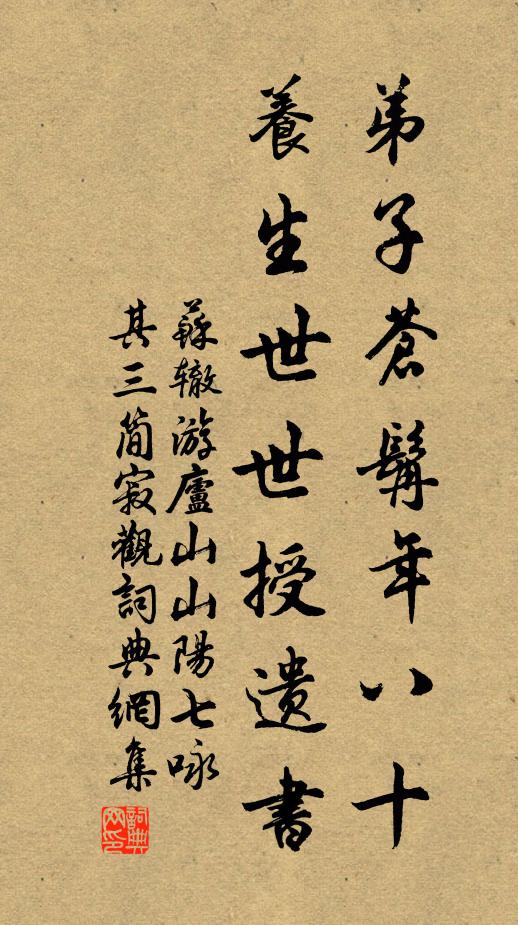 弟子苍髯年八十
養生世世授遺書
蘇辙游廬山山陽七咏
其三简寂觀詞典網集
詞典网印